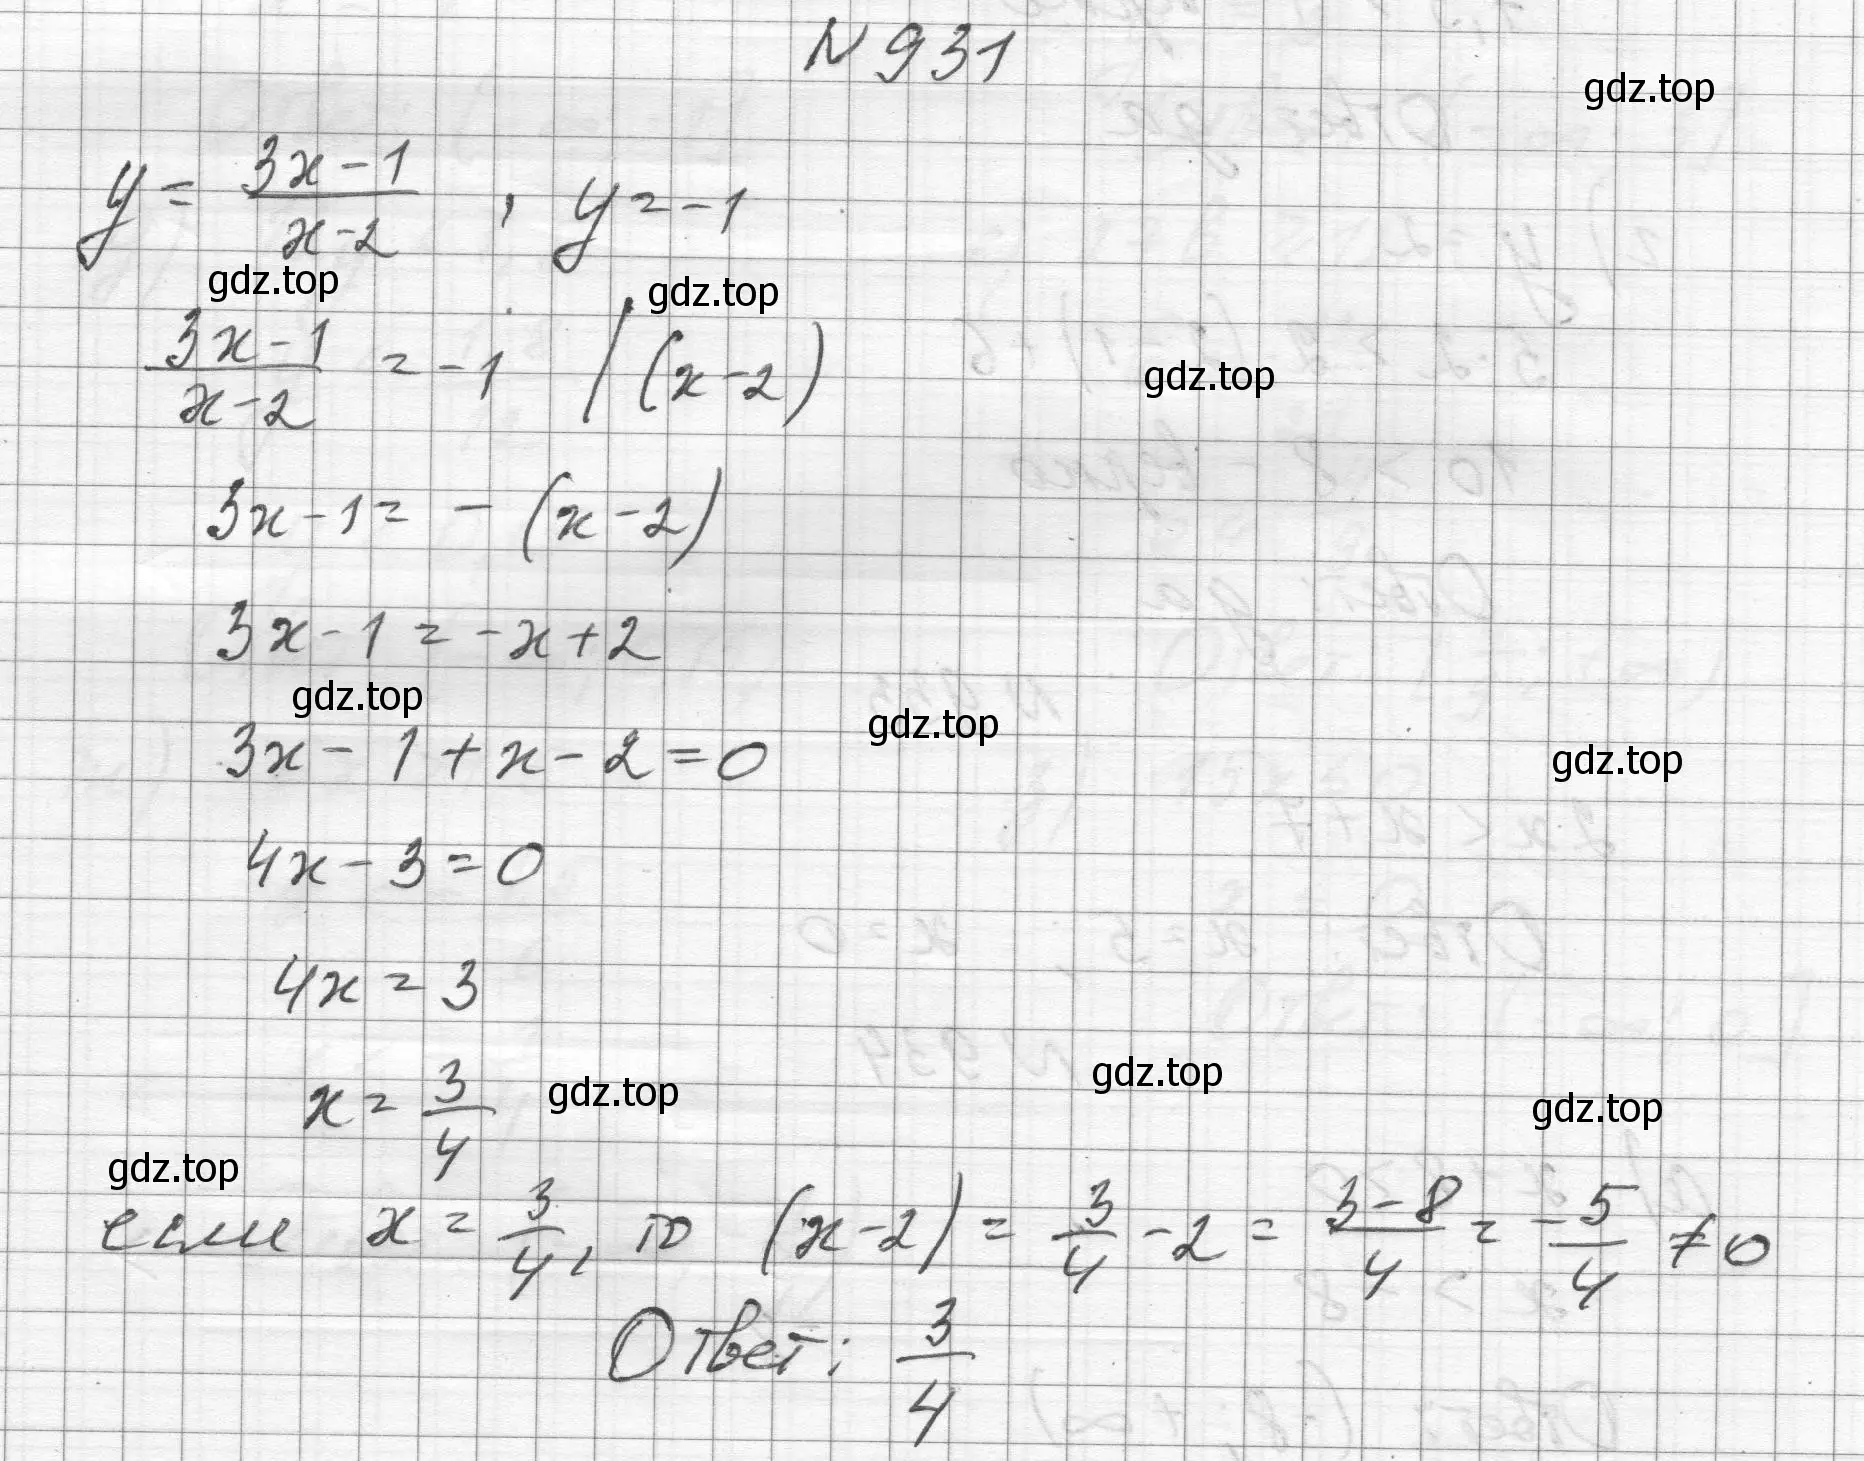 N 931
gdz.top
y = \frac{3x-1}{x-2} , y = -1
gdz.top gdz.top
\frac{3x-1}{x-2} = -1 | · (x-2)
gdz.top
3x - 1 = - (x - 2)
3x - 1 = -x + 2
gdz.top gdz.top
3x - 1 + x - 2 = 0
gdz.top
4x - 3 = 0
4x = 3
x = \frac{3}{4}
gdz.top gdz.top gdz.top
gdz.top
если x = \frac{3}{4}, то (x-2) = \frac{3}{4} - 2 = \frac{3-8}{4} = -\frac{5}{4} ≠ 0
Ответ: \frac{3}{4}